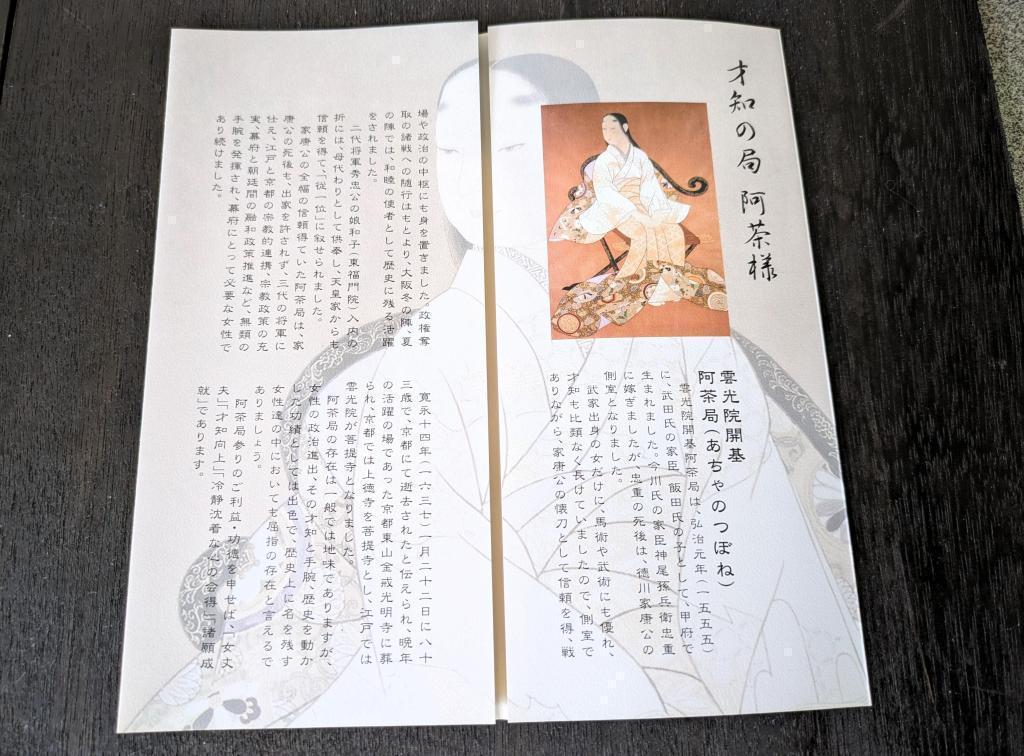 才知の局 阿茶様
雲光院開基
阿茶局(あちゃのつぼね)
雲光院開基阿茶局は、弘治元年(一五五五)
に、武田氏の家臣 飯田氏の子として、甲府で
生まれました。今川氏の家臣神尾孫兵衛忠重
に嫁ぎましたが、忠重の死後は、徳川家康公の
側室となりました。
武家出身の女だけに、馬術や武術にも優れ、
才知も比類なく長けていましたので、側室で
ありながら、家康公の懐刀として信頼を得、戦
場や政治の中枢にも身を置きました。政権奪
取の諸戦への随行はもとより、大阪冬の陣、夏
の陣では、和睦の使者として歴史に残る活躍
をされました。
二代将軍秀忠公の娘和子(東福門院)入内の
折には、母代わりとして供奉し、天皇家からも
信頼を得て、「従一位」に叙せられました。
家康公の全幅の信頼得ていた阿茶局は、家
康公の死後も、出家を許されず、三代の将軍に
仕え、江戸と京都の宗教的連携、宗教政策の充
実、幕府と朝廷間の融和政策推進など、無類の
手腕を発揮され、幕府にとって必要な女性で
あり続けました。
寛永十四年(一六三七)一月二十二日に八十
三歳で、京都にて逝去されたと伝えられ、晩年
の活躍の場であった京都東山金戒光明寺に葬
られ、京都では上徳寺を菩提寺とし、江戸では
雲光院が菩提寺となりました。
阿茶局の存在は一般では地味でありますが、
女性の政治進出、その才知と手腕、歴史を動か
した功績としては出色で、歴史上に名を残す
女性達の中においても屈指の存在と言えるで
ありましょう。
阿茶局参りのご利益・功徳を申せば、「女丈
夫」「才知向上」「冷静沈着な心の会得」「諸願成
就」であります。